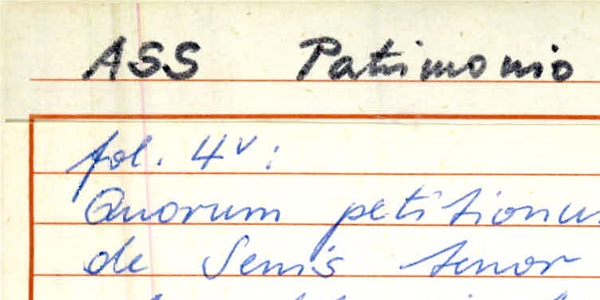 ASS Patrimonio
fol. 4v:
Quorum petitionu
de Senis tenor